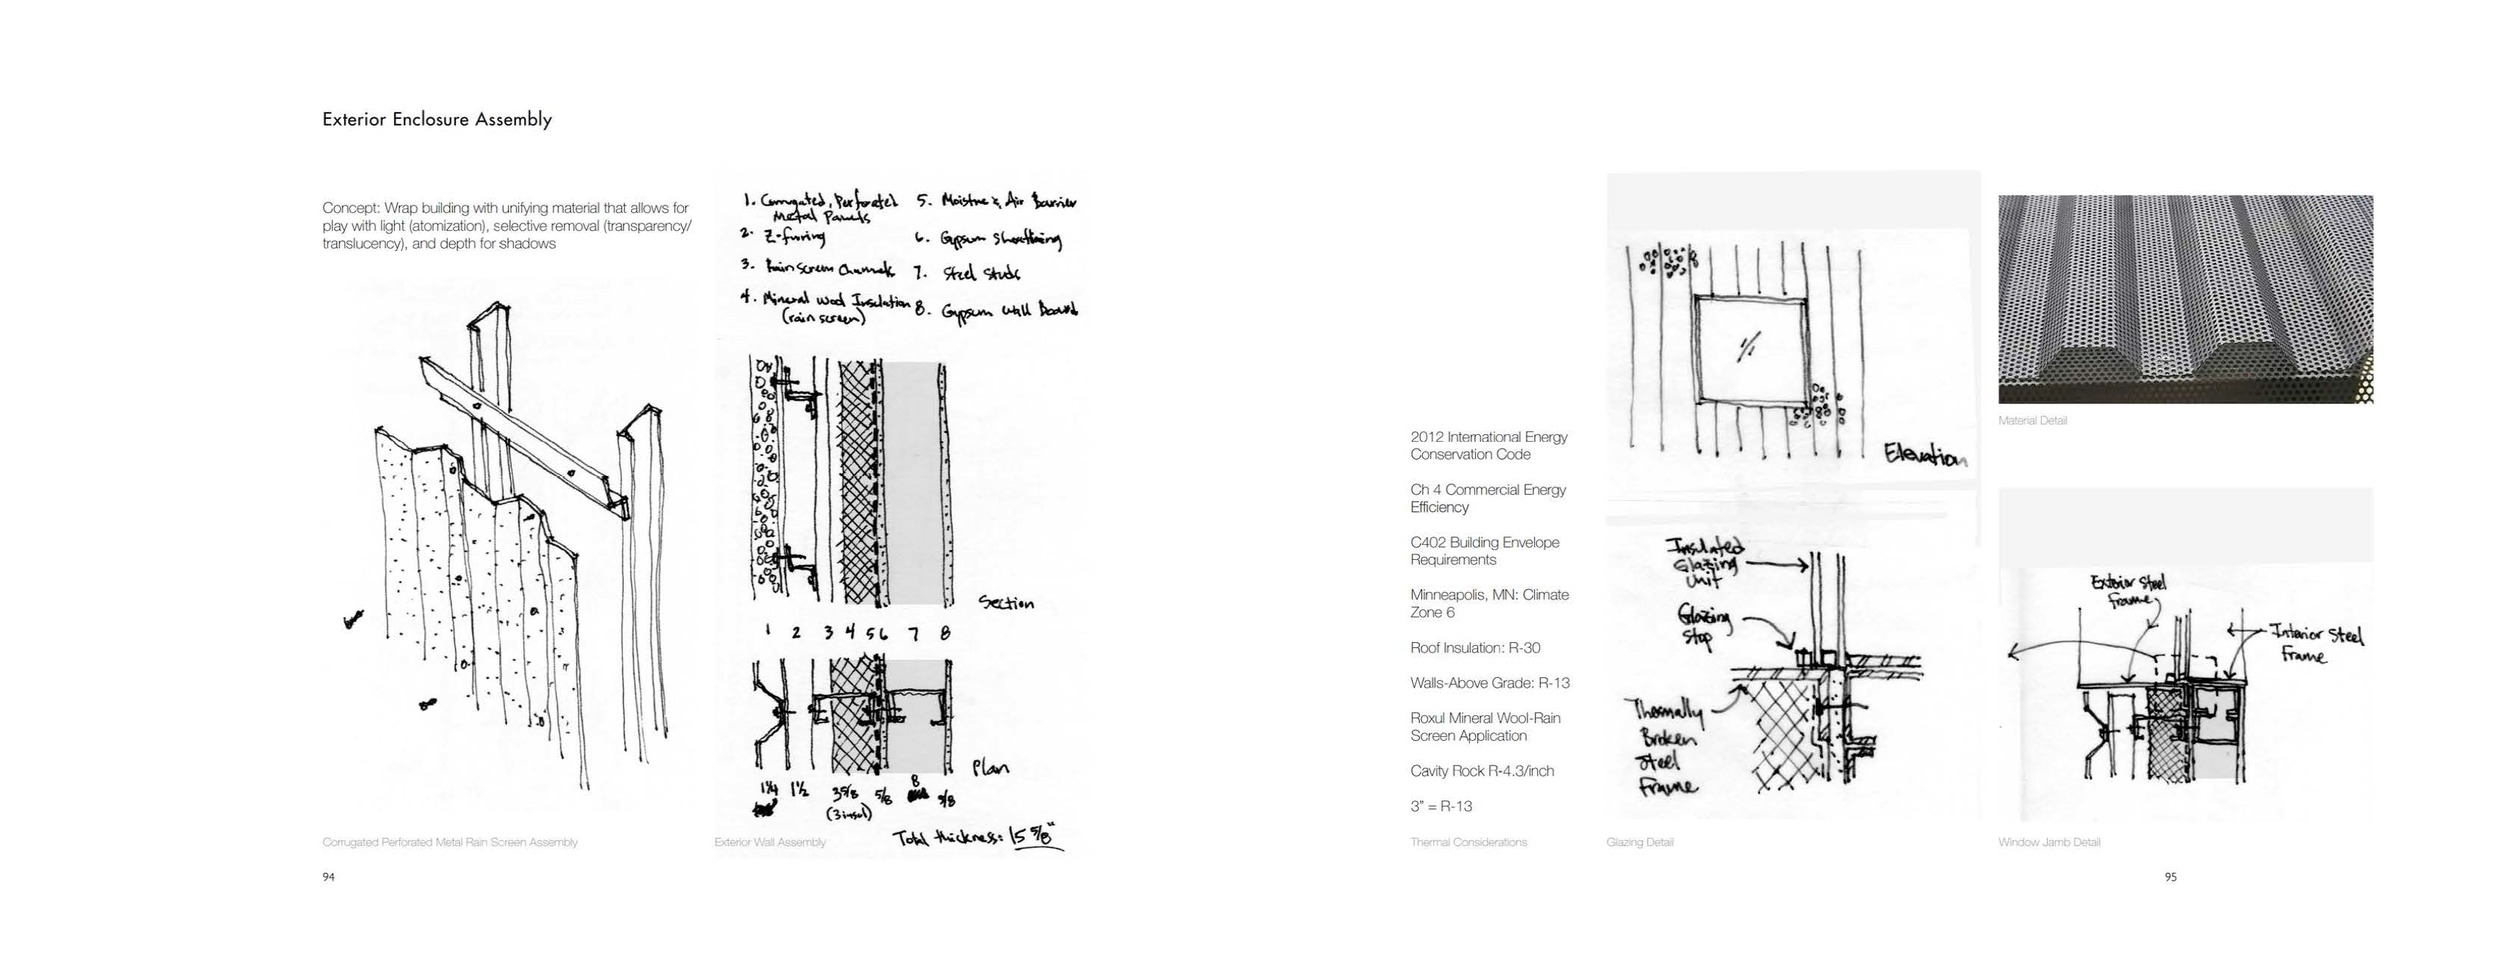 Exterior Enclosure Assembly
Concept: Wrap building with unifying material that allows for
play with light (atomization), selective removal (transparency/
translucency), and depth for shadows
Corrugated Perforated Metal Rain Screen Assembly
94
1. Corrugated, Perforated
Metal Panels
2. Z-furing
3. Rain Screen Channels
4. Mineral Wool Insulation
(rain screen)
5. Moisture & Air Barrier
6. Gypsum Sheathing
7. Steel Studs
8. Gypsum Wall Board
Section
1 2 3 4 5 6 7 8
Plan
1 1/4 1 1/2 3 5/8 5/8 8 5/8
(3 insul)
Total thickness: 15 5/8"
Exterior Wall Assembly
2012 International Energy
Conservation Code
Ch 4 Commercial Energy
Efficiency
C402 Building Envelope
Requirements
Minneapolis, MN: Climate
Zone 6
Roof Insulation: R-30
Walls-Above Grade: R-13
Roxul Mineral Wool-Rain
Screen Application
Cavity Rock R-4.3/inch
3" = R-13
Thermal Considerations
Elevation
Insulated
Glazing
Unit
Glazing
Stop
Thermally
Broken
Steel
Frame
Glazing Detail
Material Detail
Exterior Steel
Frame
Interior Steel
Frame
Window Jamb Detail
95